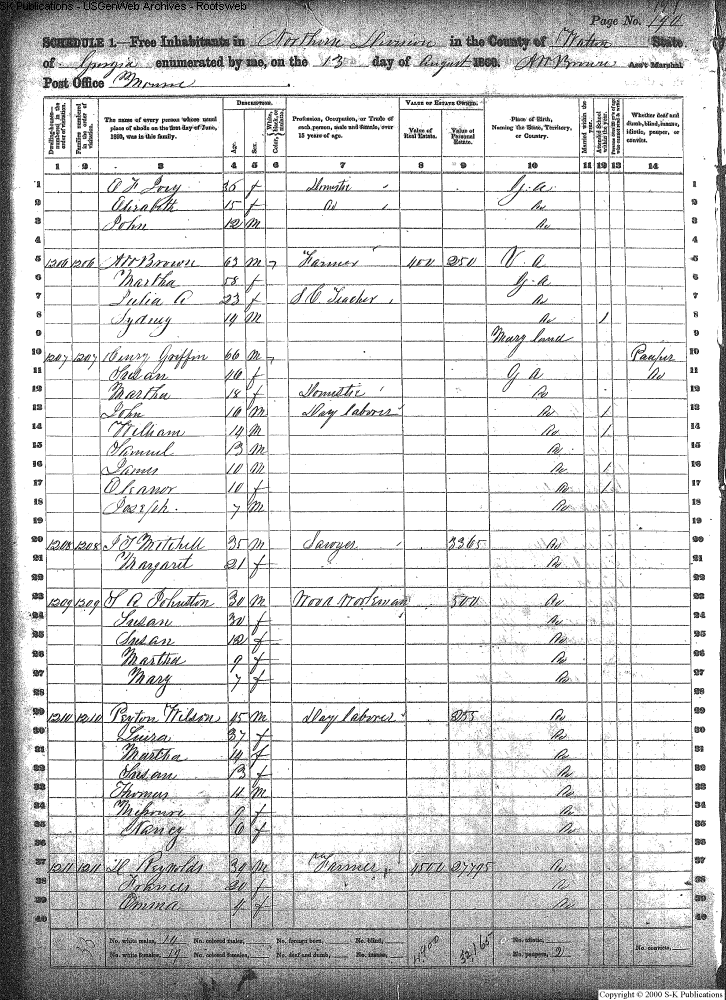 S-K Publications - USGenWeb Archives - Rootsweb
Page No. 190
SCHEDULE 1.—Free Inhabitants in Northern Division in the County of Walton State
of Georgia enumerated by me, on the 13 day of August 1860. A W Brown Ass't Marshal.
Post Office Monroe
Dwelling-houses—numbered in the order of visitation.
Families numbered in the order of visitation.
The name of every person whose usual place of abode on the first day of June, 1860, was in this family.
DESCRIPTION.
Age.
Sex.
Color, White, black, or mulatto.
Profession, Occupation, or Trade of each person, male and female, over 15 years of age.
VALUE OF ESTATE OWNED.
Value of Real Estate.
Value of Personal Estate.
Place of Birth, Naming the State, Territory, or Country.
Married within the year.
Attended School within the year.
Whether deaf and dumb, blind, insane, idiotic, pauper, or convict.
1 2 3 4 5 6 7 8 9 10 11 12 13 14
1 36 f Domestic Ga 1
2 15 f Do Do 2
3 John 12 m Do 3
4 4
5 1206 1206 A W Brown 63 m Farmer 400 250 V. a 5
6 Martha 58 f Ga 6
7 Julia A 23 f S. C Teacher Do 7
8 Sydney 14 m Do 1 8
9 Maryland 9
10 1207 1207 Henry Griffin 66 m Pauper 10
11 Susan 46 f G a Do 11
12 Martha 18 f Domestic Do 12
13 John 16 m Day laborer Do 1 13
14 William 14 m Do 1 14
15 Samuel 13 m Do 15
16 James 10 m Do 1 16
17 Eleanor 10 f Do 1 17
18 Joseph 7 m Do 18
19 19
20 1208 1208 J T Mitchell 35 m Sawyer 3365 Do 20
21 Margaret 21 f Do 21
22 22
23 1209 1209 A Johnston 30 m Wood Workman 500 Do 23
24 Susan 30 f Do 24
25 Susan 12 f Do 25
26 Martha 9 f Do 26
27 Mary 7 f Do 27
28 28
29 1210 1210 Peyton Wilson 45 m Day laborer 255 Do 29
30 Luiza 37 f Do 30
31 Martha 14 f Do 31
32 Susan 13 f Do 32
33 Thomas 11 m Do 33
34 9 f Do 34
35 Nancy 6 f Do 35
36 36
37 1211 1211 Reynolds 30 m Farmer 4500 27795 Do 37
38 Frances 20 f Do 38
39 Emma 4 f Do 39
40 40
No. white males, 14 No. colored males, No. foreign born, No. blind, 4900 32165 No. idiotic,
No. white females, 19 No. colored females, No. deaf and dumb, No. insane, No. paupers, 2 No. convicts,
Copyright © 2000 S-K Publications